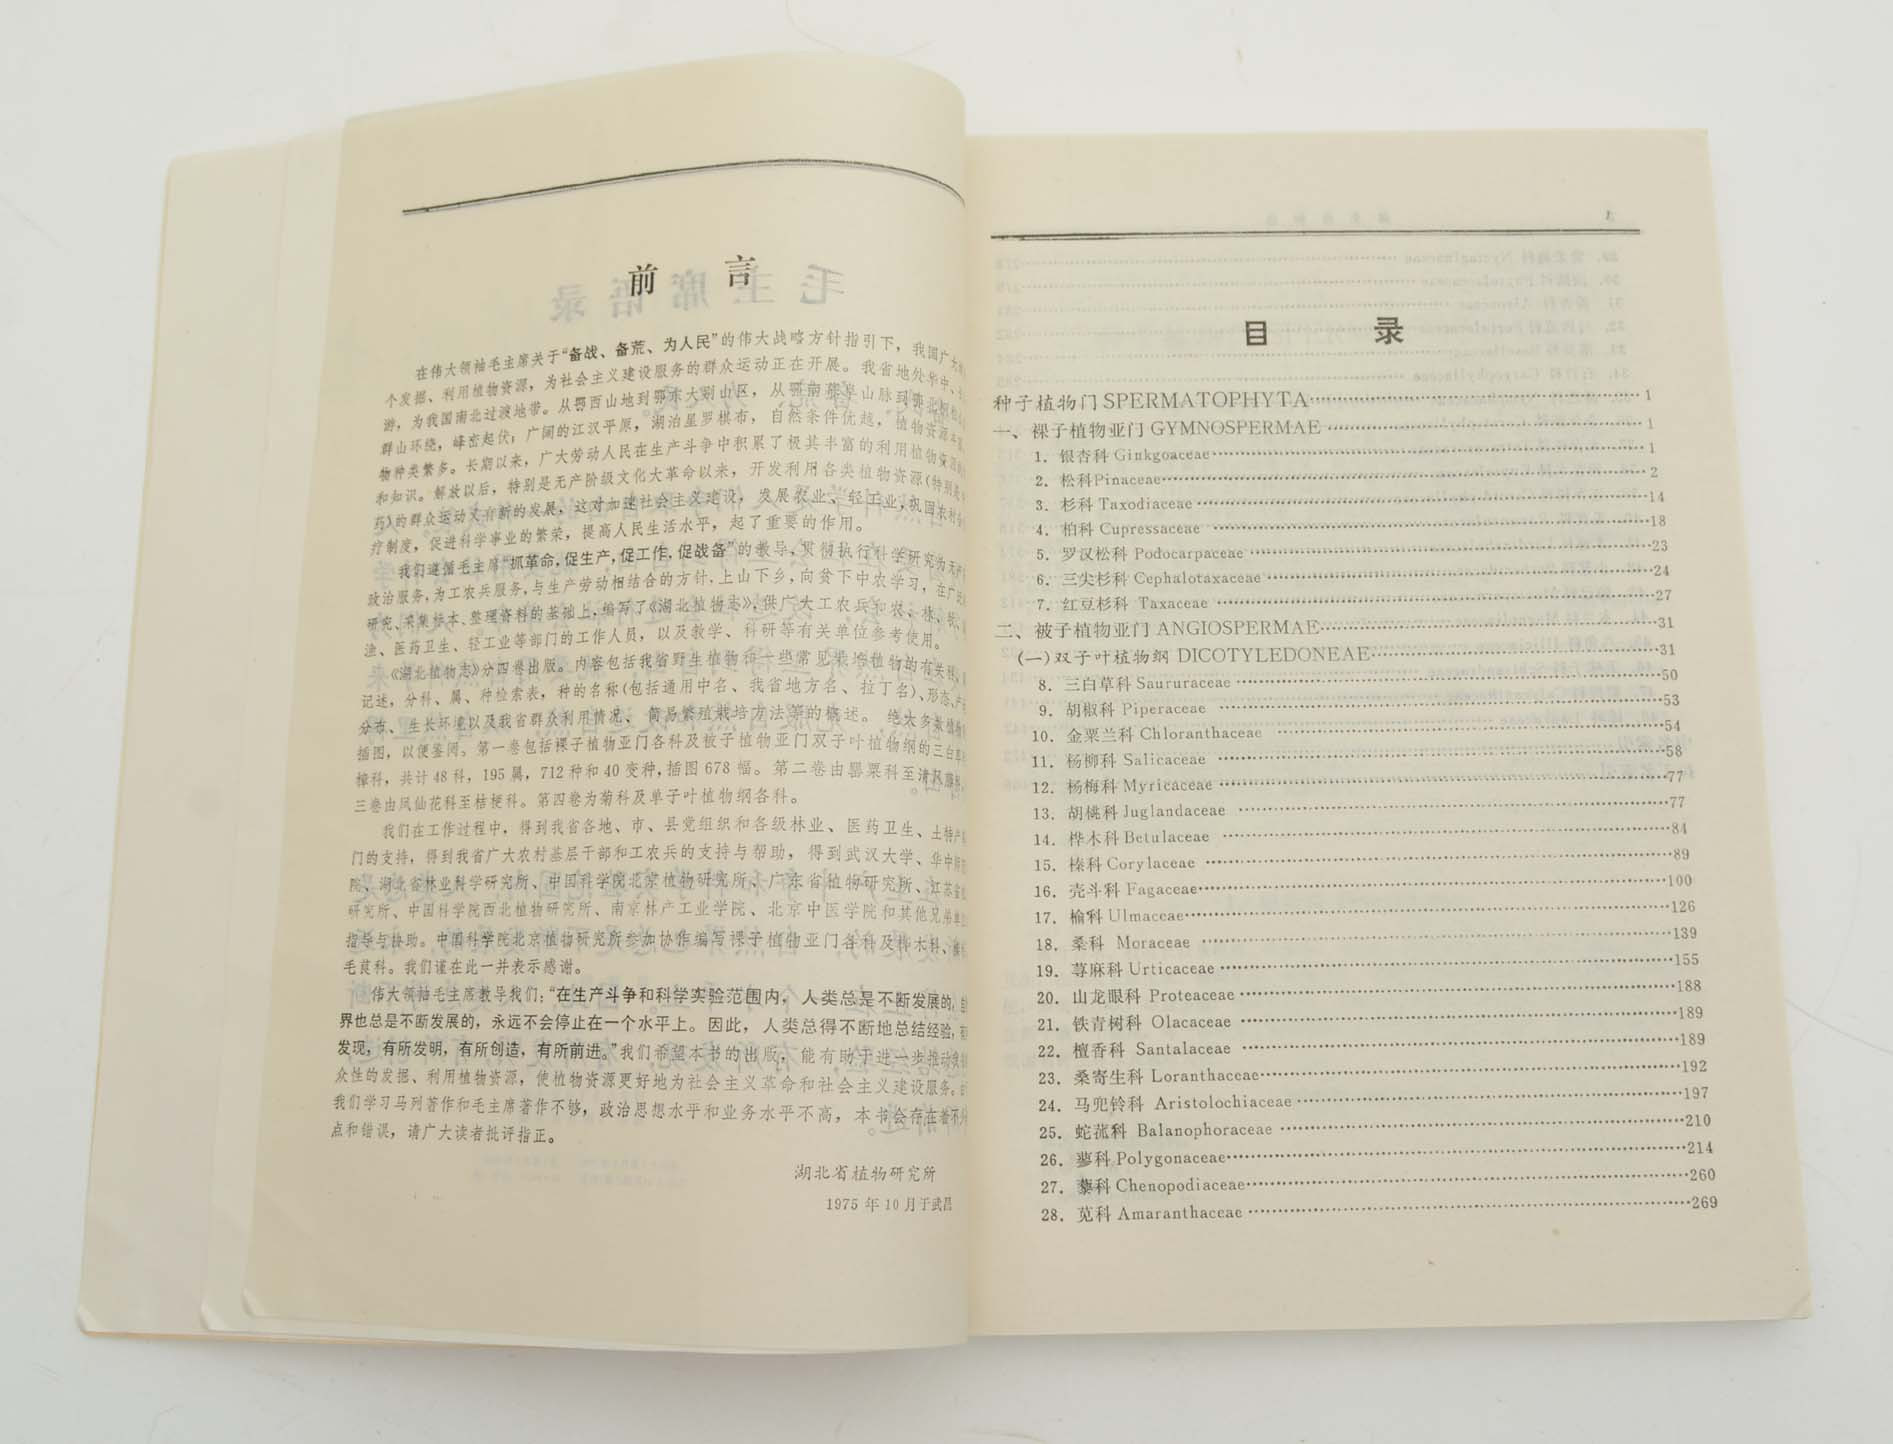 前 言
在伟大领袖毛主席关于“备战、备荒、为人民”的伟大战略方针指引下，我国广大
个发掘、利用植物资源，为社会主义建设服务的群众运动正在开展。我省地处华中、
游，为我国南北过渡地带。从鄂西山地到鄂东大别山区，从鄂南
群山环绕，峰峦起伏；广阔的江汉平原，湖泊星罗棋布，自然条件优越，植物资源丰
物种类繁多。长期以来，广大劳动人民在生产斗争中积累了极其丰富的利用植物资源
和知识。解放以后，特别是无产阶级文化大革命以来，开发利用各类植物资源(特别是
药)的群众运动又有新的发展，这对加速社会主义建设，发展农业、轻工业，巩固农村合
疗制度，促进科学事业的繁荣，提高人民生活水平，起了重要的作用。
我们遵循毛主席“抓革命，促生产，促工作，促战备”的教导，贯彻执行科学研究为无产
政治服务，为工农兵服务，与生产劳动相结合的方针，上山下乡，向贫下中农学习，在广泛
研究、采集标本、整理资料的基础上，编写了《湖北植物志》，供广大工农兵和农、林、牧、
渔、医药卫生、轻工业等部门的工作人员，以及教学、科研等有关单位参考使用。
《湖北植物志》分四卷出版。内容包括我省野生植物和一些常见栽培植物的有关科、
记述，分科、属、种检索表，种的名称(包括通用中名、我省地方名、拉丁名)、形态、产
分布、生长环境以及我省群众利用情况、简易繁殖栽培方法等的概述。绝大多数植物
插图，以便鉴阅。第一卷包括裸子植物亚门各科及被子植物亚门双子叶植物纲的三白草
樟科，共计48科，195属，712种和40变种，插图678幅。第二卷由罂粟科至清风藤科。
三卷由凤仙花科至桔梗科。第四卷为菊科及单子叶植物纲各科。
我们在工作过程中，得到我省各地、市、县党组织和各级林业、医药卫生、土特产
门的支持，得到我省广大农村基层干部和工农兵的支持与帮助，得到武汉大学、华中师
院、湖北省林业科学研究所、中国科学院北京植物研究所、广东省植物研究所、江苏省
研究所、中国科学院西北植物研究所、南京林产工业学院、北京中医学院和其他兄弟单
指导与协助。中国科学院北京植物研究所参加协作编写裸子植物亚门各科及桦木科、榛
毛茛科。我们谨在此一并表示感谢。
伟大领袖毛主席教导我们：“在生产斗争和科学实验范围内，人类总是不断发展的，自
界也总是不断发展的，永远不会停止在一个水平上。因此，人类总得不断地总结经验，有
发现，有所发明，有所创造，有所前进。”我们希望本书的出版，能有助于进一步推动我
众性的发掘、利用植物资源，使植物资源更好地为社会主义革命和社会主义建设服务。
我们学习马列著作和毛主席著作不够，政治思想水平和业务水平不高，本书会存在着不少
点和错误，请广大读者批评指正。
湖北省植物研究所
1975年10月于武昌
目 录
种子植物门 SPERMATOPHYTA……1
一、裸子植物亚门 GYMNOSPERMAE……1
1．银杏科 Ginkgoaceae……1
2．松科 Pinaceae……2
3．杉科 Taxodiaceae……14
4．柏科 Cupressaceae……18
5．罗汉松科 Podocarpaceae……23
6．三尖杉科 Cephalotaxaceae……24
7．红豆杉科 Taxaceae……27
二、被子植物亚门 ANGIOSPERMAE……31
(一)双子叶植物纲 DICOTYLEDONEAE……31
8．三白草科 Saururaceae……50
9．胡椒科 Piperaceae……53
10．金粟兰科 Chloranthaceae……54
11．杨柳科 Salicaceae……58
12．杨梅科 Myricaceae……77
13．胡桃科 Juglandaceae……77
14．桦木科 Betulaceae……84
15．榛科 Corylaceae……89
16．壳斗科 Fagaceae……100
17．榆科 Ulmaceae……126
18．桑科 Moraceae……139
19．荨麻科 Urticaceae……155
20．山龙眼科 Proteaceae……188
21．铁青树科 Olacaceae……189
22．檀香科 Santalaceae……189
23．桑寄生科 Loranthaceae……192
24．马兜铃科 Aristolochiaceae……197
25．蛇菰科 Balanophoraceae……210
26．蓼科 Polygonaceae……214
27．藜科 Chenopodiaceae……260
28．苋科 Amaranthaceae……269